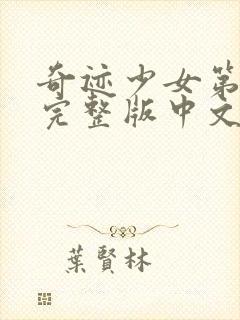 奇迹少女第
完整版中文
葉賢林